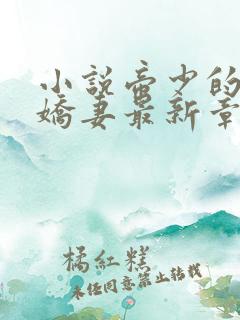 小説帝少的
嬌妻最新章
橘紅糕
未任同意禁止轉載